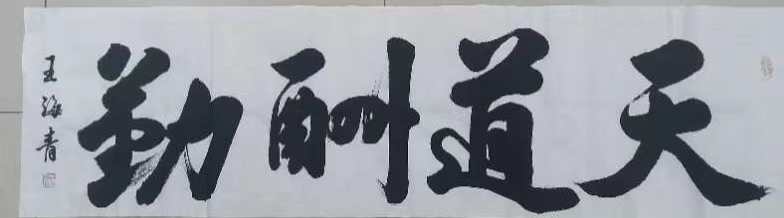 天道酬勤
王海青